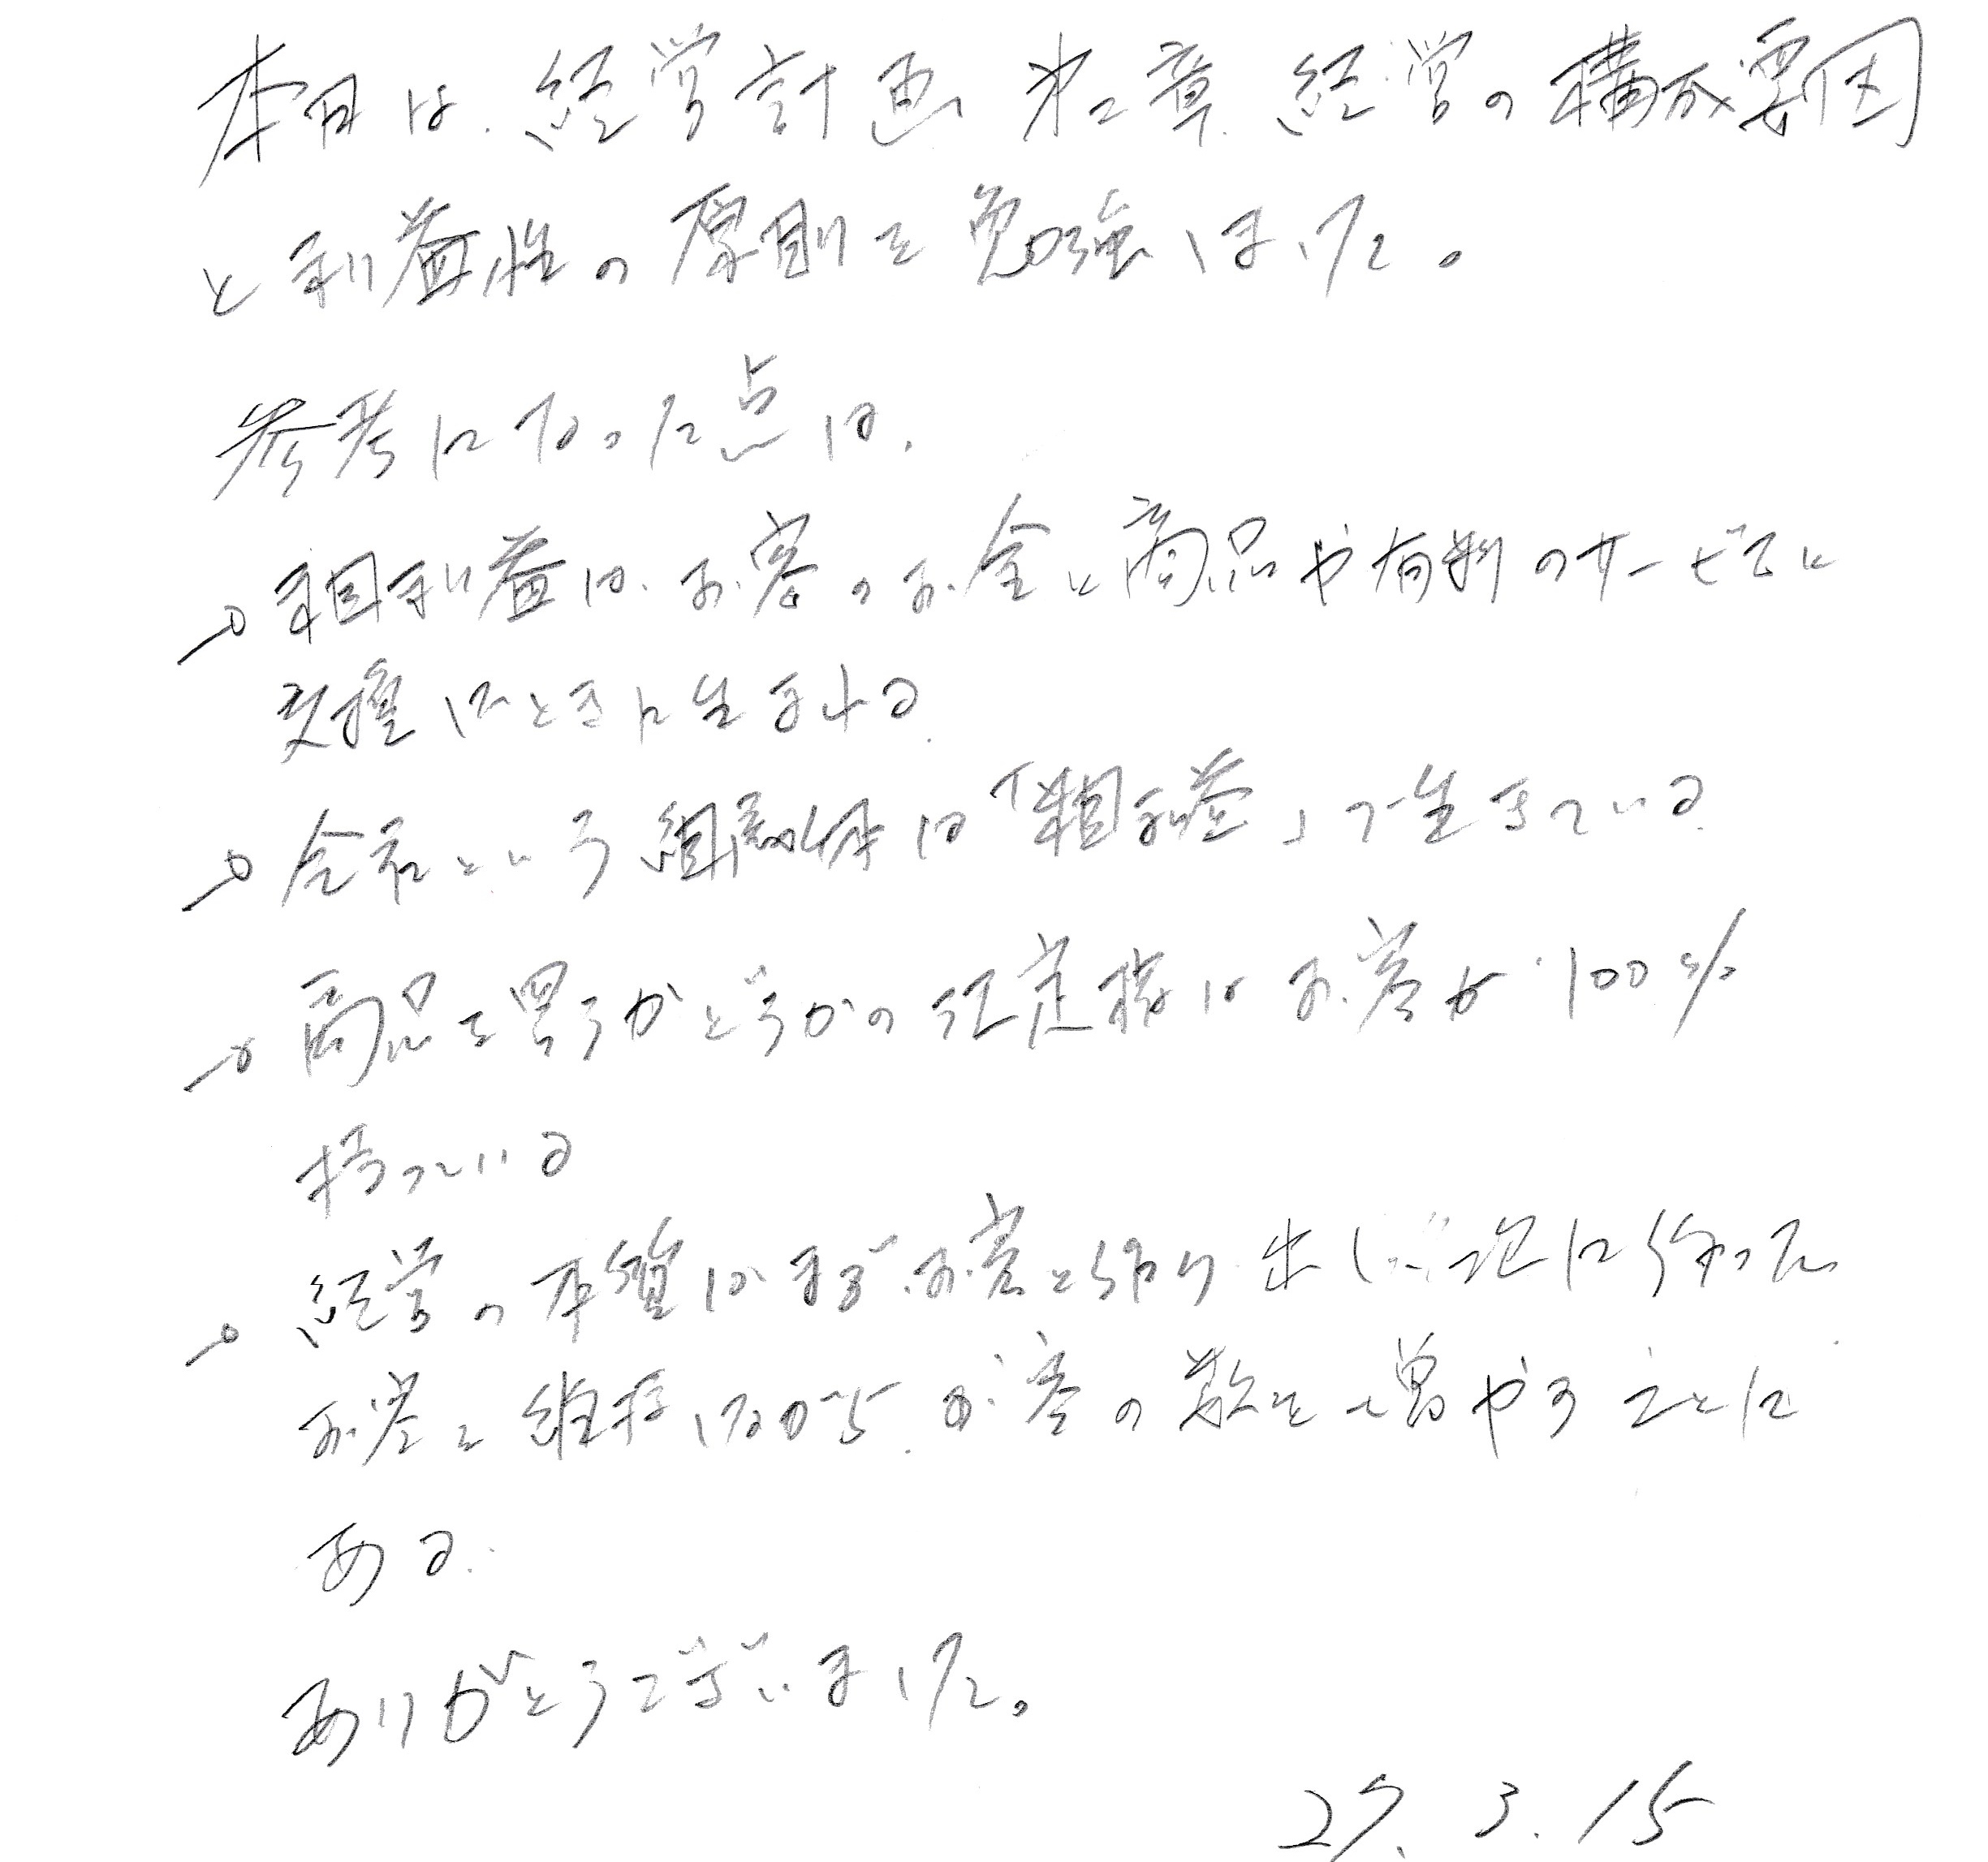 本日は、経営計画 第二章 経営の構成要因
と利益性の原則を勉強しました。
参考になった点は、
→ 粗利益は、お客のお金と商品や有料のサービスと
交換したときに生まれる。
→ 会社という組織体は「粗利益」で生きている。
→ 商品を買うかどうかの決定権はお客が100%
持っている
→ 経営の本質は、まず、お客を作り出し、次に作った
お客を維持しながら、お客の数を増やすことに
ある。
ありがとうございました。
27. 3. 15